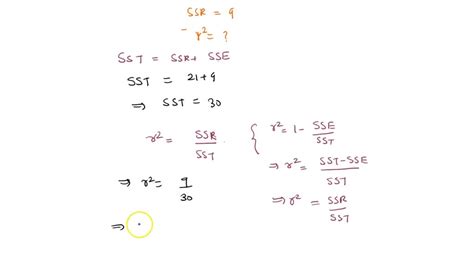 SSR = 9
r² = ?
SST = SSR+ SSE
SST = 21+9
⇒ SST = 30
r² = SSR/SST
⇒ r² = 9/30
⇒
{ r² = 1 - SSE/SST
⇒ r² = SST-SSE/SST
⇒ r² = SSR/SST